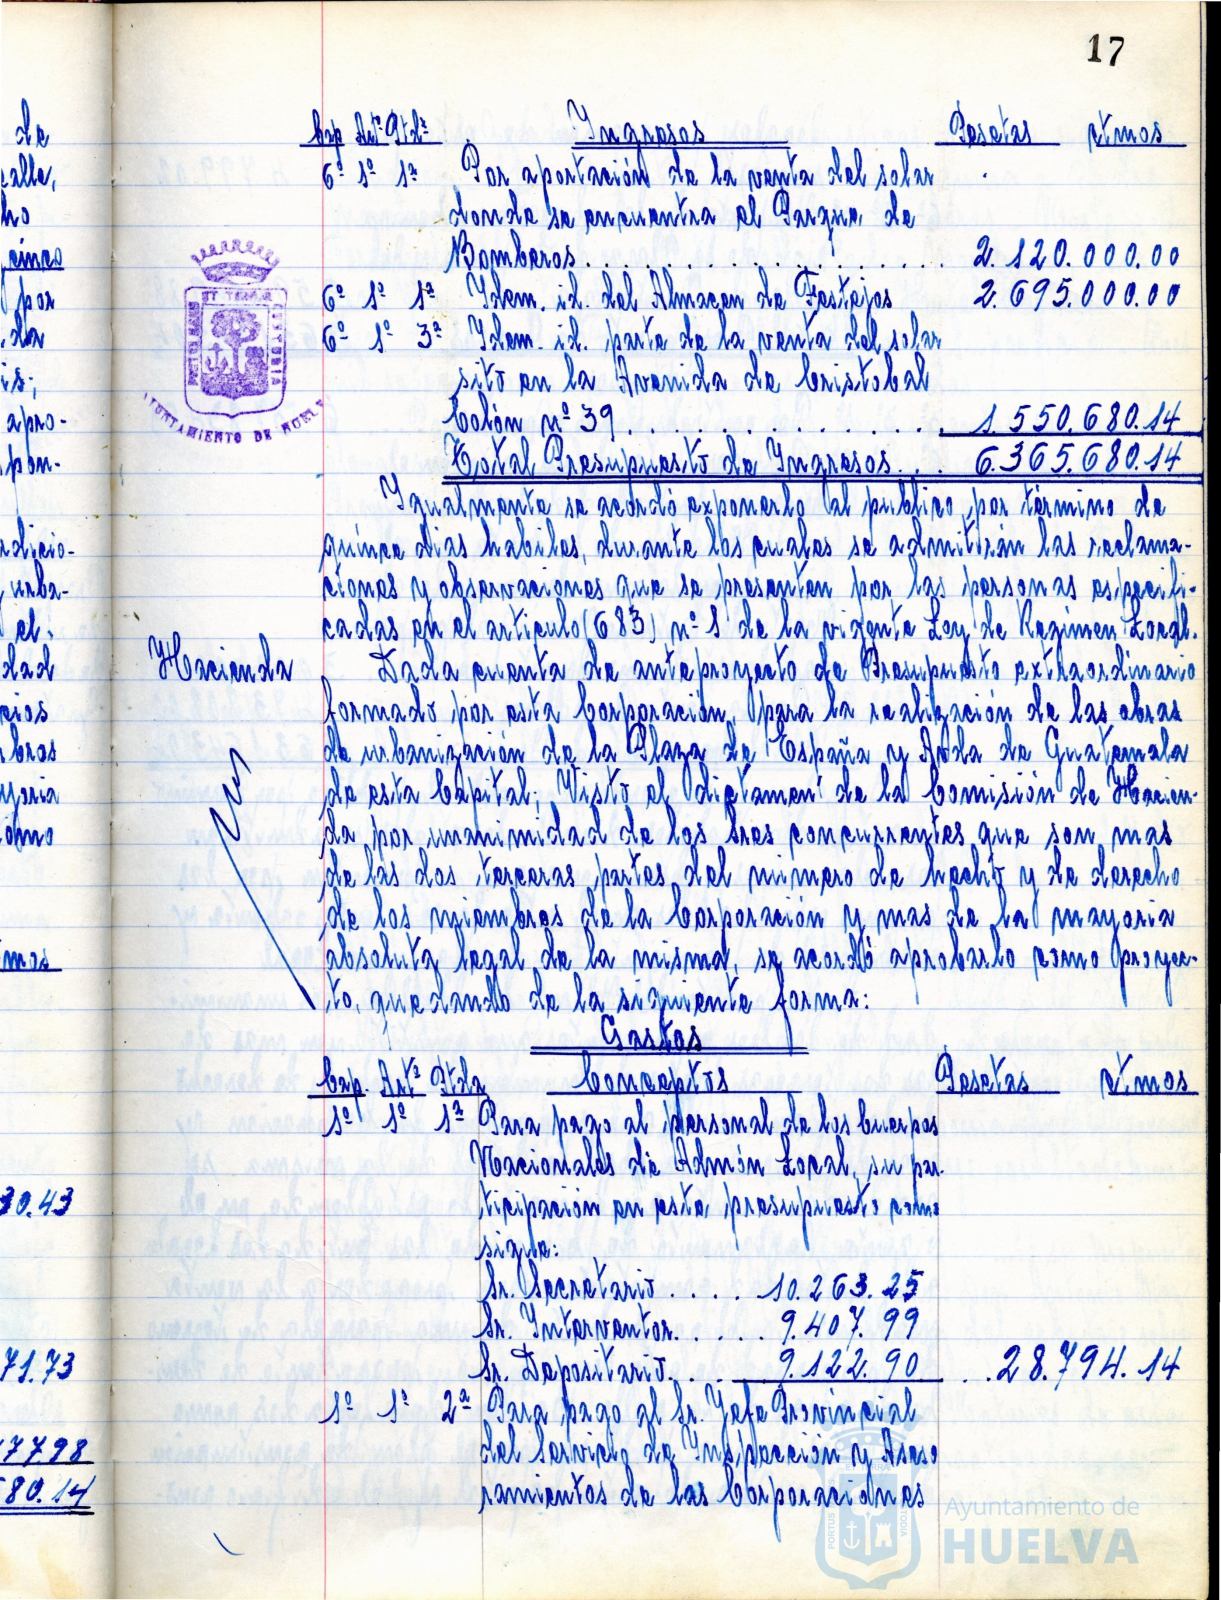 17
Cap Artº Ptdª Ingresos Pesetas ctmos
6º 1º 1ª Por aportación de la venta del solar
donde se encuentra el Parque de
Bomberos . . . . . . . . . . 2.120.000.00
6º 1º 1ª Idem. id. del Almacen de Festejos 2.695.000.00
6º 1º 3ª Idem. id. parte de la venta del solar
sito en la Avenida de Cristobal
Colón nº 39 . . . . . . . . . . 1.550.680.14
Total Presupuesto de Ingresos . . . 6.365.680.14
Igualmente se acordó exponerlo al publico, por término de
quince dias habiles, durante los cuales se admitirán las reclama-
ciones y observaciones que se presenten por las personas especifi-
cadas en el articulo (683) nº 1 de la vigente Ley de Regimen Local.
Hacienda
Dada cuenta de anteproyecto de Presupuesto extraordinario
formado por esta Corporación, para la realización de las obras
de urbanización de la Plaza de España y Avda de Guatemala
de esta Capital; Visto el dictamen de la Comisión de Hacien-
da por unanimidad de los Sres concurrentes que son mas
de las dos terceras partes del número de hecho y de derecho
de los miembros de la Corporación y mas de la mayoria
absoluta legal de la misma, se acordó aprobarlo como proyec-
to, quedando de la siguiente forma:
Gastos
Cap. Artº Ptda Conceptos Pesetas ctmos
1º 1º 1ª Para pago al personal de los Cuerpos
Nacionales de Admón Local, su par-
ticipación en este presupuesto como
sigue:
Sr. Secretario . . . . 10.263.25
Sr. Interventor . . . . . 9.407.99
Sr. Depositario . . . 9.122.90 . . 28.794.14
1º 1º 2ª Para pago al Sr. Jefe Provincial
del Servicio de Inspección y Aseso
ramientos de las Corporaciones
AYUNTAMIENTO DE HUELVA
Ayuntamiento de
HUELVA
de
calle,
cinco
por
da
apro-
pon-
urba-
el
dad
bros
como
30.43
71.73
7798
80.14